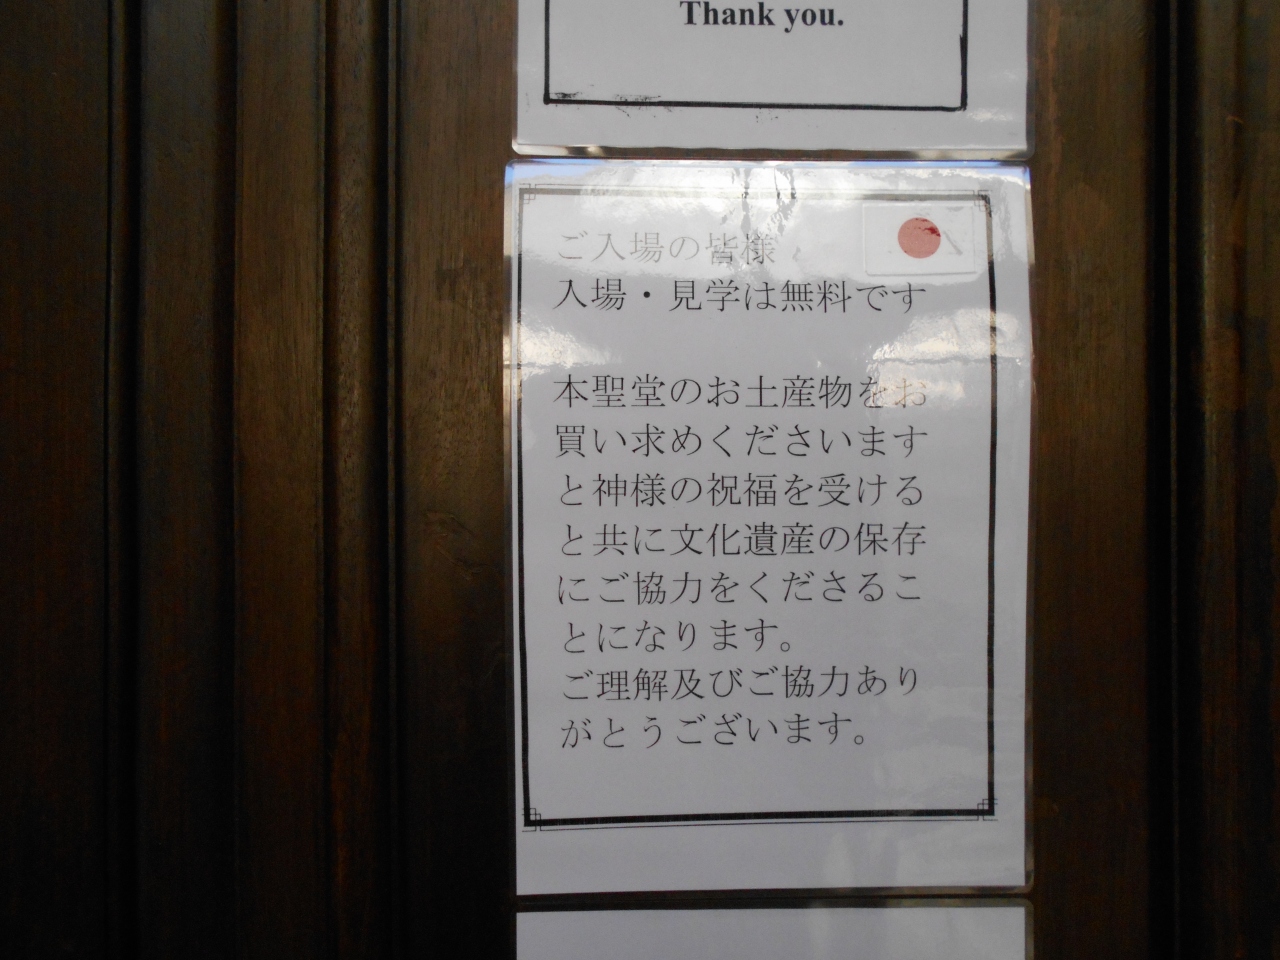 Thank you.
ご入場の皆様
入場・見学は無料です
本聖堂のお土産物をお
買い求めくださいます
と神様の祝福を受ける
と共に文化遺産の保存
にご協力をくださるこ
とになります。
ご理解及びご協力あり
がとうございます。